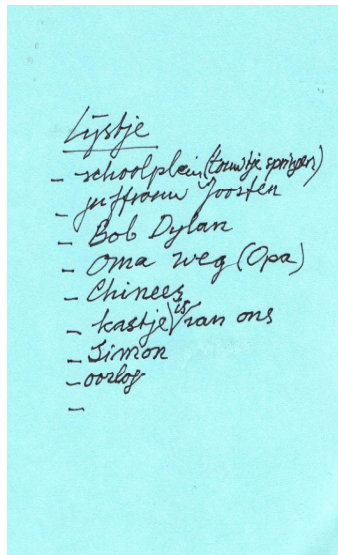 Lijstje
- schoolplein (touwtje springen)
- juffrouw Joosten
- Bob Dylan
- Oma weg (Opa)
- Chinees
- kastje is van ons
- Simon
- oorlog
-